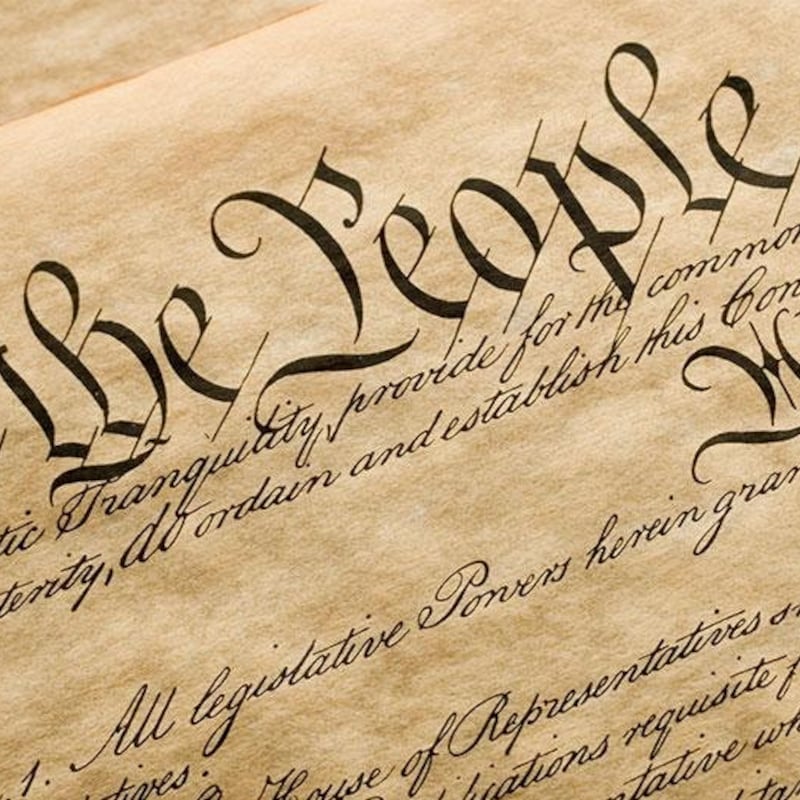 the People
tic Tranquility, provide for the common
terity, do ordain and establish this Con
1. All legislative Powers herein gran
tives.
House of Representatives s
ications requisite f
ntative wh